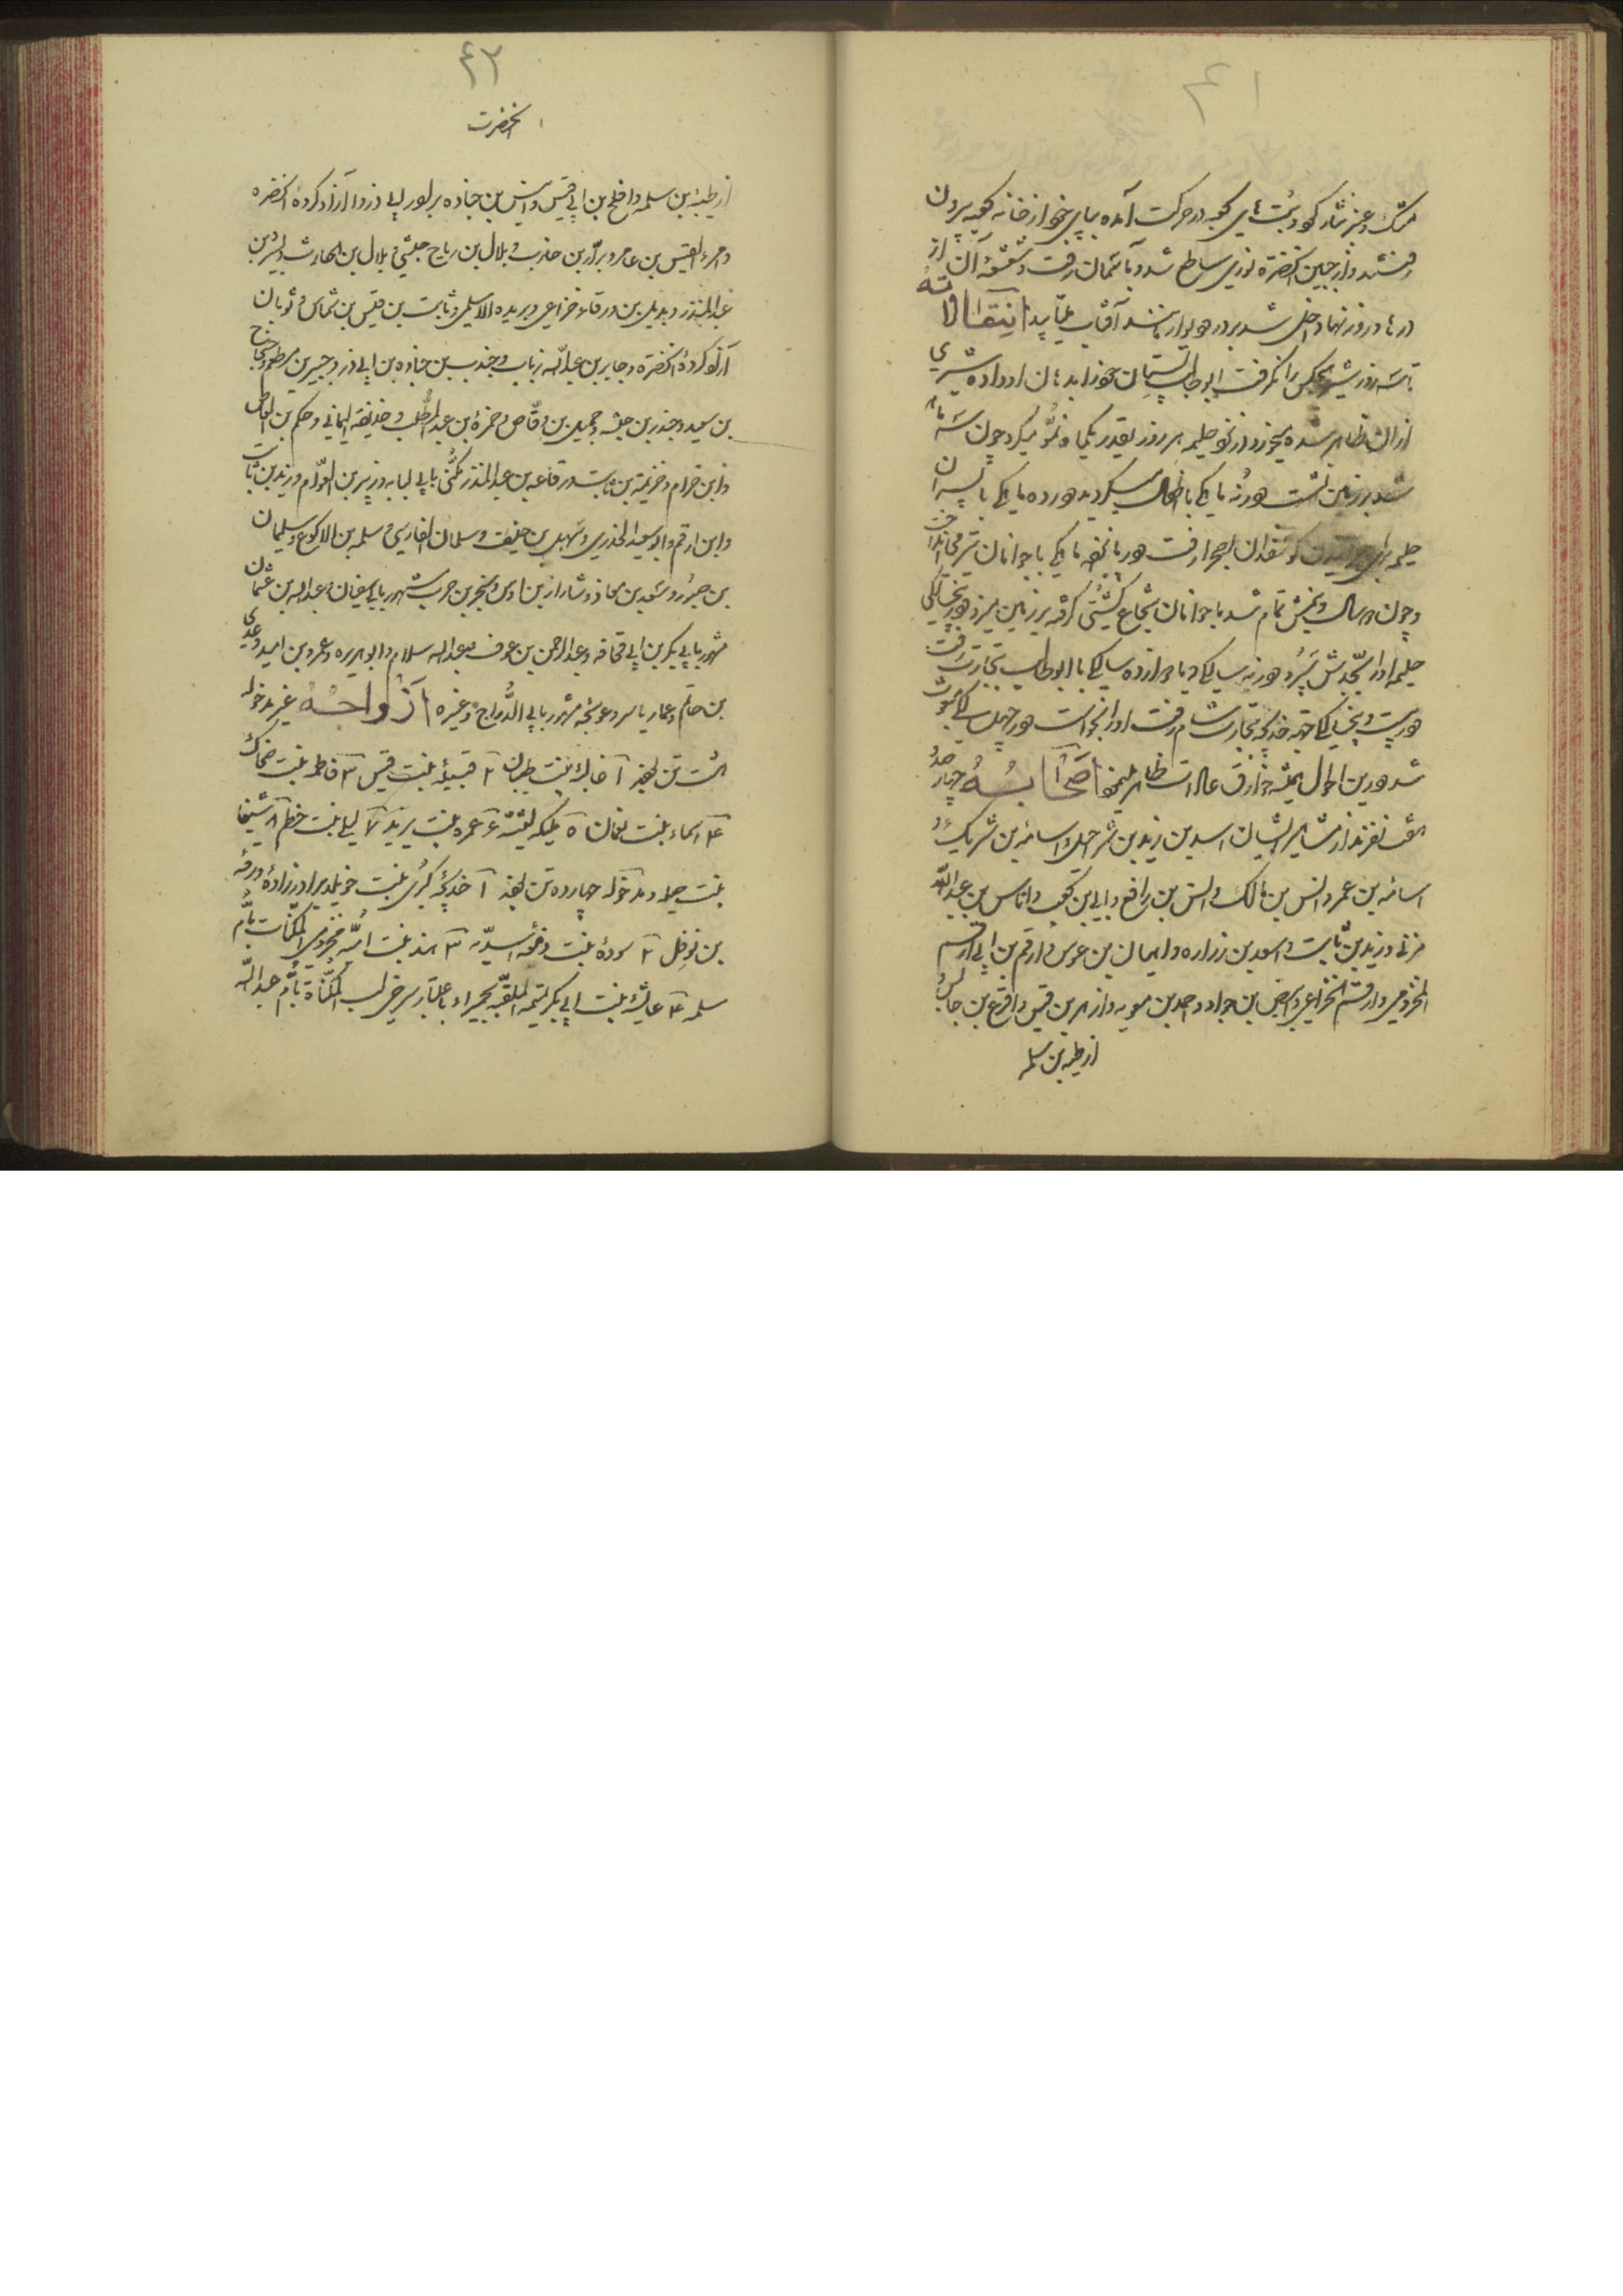 ۴۱
مشک و عنبر نثار کرد و بت های کعبه در حرکت آمده بپای خود از خانه کعبه بیرون
رفتند و از جبین آنحضرة نوری ساطع شد و بآسمان رفت و شعشعه آن از
درها و روزنها داخل شد بر در و دیوار مانند آفتاب بتابید انتقالاته
تا سه روز شیر هیچکس را نگرفت ابوطالب پستان خود را بدهان او داده شیری
از آن ظاهر شده میخورد از نمو حلیمه هر روز بقدر یکماه نمو میکرد چون سه ماهه
شد بر زمین نشست در نه ماهگی با اطفال میگردید در ده ماهگی با پسران
حلیمه برای گوسفندان بصحرا رفت در پانزده ماهگی با جوانان تیر می‌انداخت
و چون دو سال و نیمش تمام شد با جوانان شجاع کشتی گرفته بر زمین میزد در پنجسالگی
حلیمه او را بجدش سپرد در نه سالگی و یا دوازده سالگی با ابوطالب بتجارت رفت
در بیست و پنجسالگی جهة خدیجه بتجارت شام رفت او را بخواست در چهل سالگی مبعوث
شد در این احوال همیشه خوارق عادات ظاهر مینمود اصحابه چهار صد
هشت نفرند از مشاهیر ایشان اسد بن زید بن شراحیل و اسامه بن شریک و
اسامه بن عمر و انس بن مالک و انس بن رافع و ابی بن کعب و اناس بن عبدالله
مزنی و زید بن ثابت و اسعد بن زراره و ایمان بن عوس و ارقم بن ابی ارقم
المخزومی و ارقم الخزاعی و ابیض بن جواد و احمد بن معویه و ازهر بن قیس و اقرع بن حابس
ازطیه بن سلمه
۴۲
آنحضرت
ازطیه بن سلمه و افلح بن ابی قیس و انیس بن جناده برادر ابی ذر و آزاد کرده آنحضرة
و امرء القیس بن عامر و براء بن عازب و بلال بن رباح حبشی و بلال بن الحارث و بشر بن
عبدالمنذر و بدیل بن ورقاء خزاعی و بریده الاسلمی و ثابت بن قیس بن شماس و ثوبان
آزاد کرده آنحضرة و جابر بن عبدالله و جندب بن جناده بن ابی ذر و جبیر بن مطعم و
بن سعید و جندر بن حبشه و جمیل بن وقاص و حمزة بن عبدالمطلب و حذیفة الیمانی و حکم بن العاص
و ابن حزام و خزیمة بن ثابت و رفاعه بن عبدالمنذر مکنی بابی لبابه و زبیر بن العوام و زید بن ثابت
و ابن ارقم و ابوسعید الخدری و سهیل بن حنیف و سلمان الفارسی و سلمه بن الاکوع و سلیمان
بن صرد و سعد بن معاذ و شداد بن اوس و صخر بن حرب مشهور بابی سفیان و عبدالله بن عثمان
مشهور بابی بکر بن ابی قحافه و عبدالرحمن بن عوف و عبدالله سلام و ابو هریره و عمرو بن امیه و عدی
بن حاتم و عمار یاسر و عوسجه مشهور بابی الدرداء و غیره ازواجه غیر مدخوله
هشت تن بودند ۱ عالیه بنت ظبیان ۲ قتیله بنت قیس ۳ فاطمه بنت ضحاک
۴ اسماء بنت نعمان ۵ ملیکه لیثیه ۶ عمره بنت یزید ۷ لیلی بنت خطیم ۸ شیخا
بنت صلا و مدخوله چهارده تن بودند ۱ خدیجه کبری بنت خویلد برادرزاده ورقه
بن نوفل ۲ سوده بنت زمعه اسدیه ۳ هند بنت امیه مخزومی المکنات بام
سلمه ۴ عایشه بنت ابی بکر تیمیه الملقبه بحمیراء باعتبار سرخی لب المکناة بام عبدالله